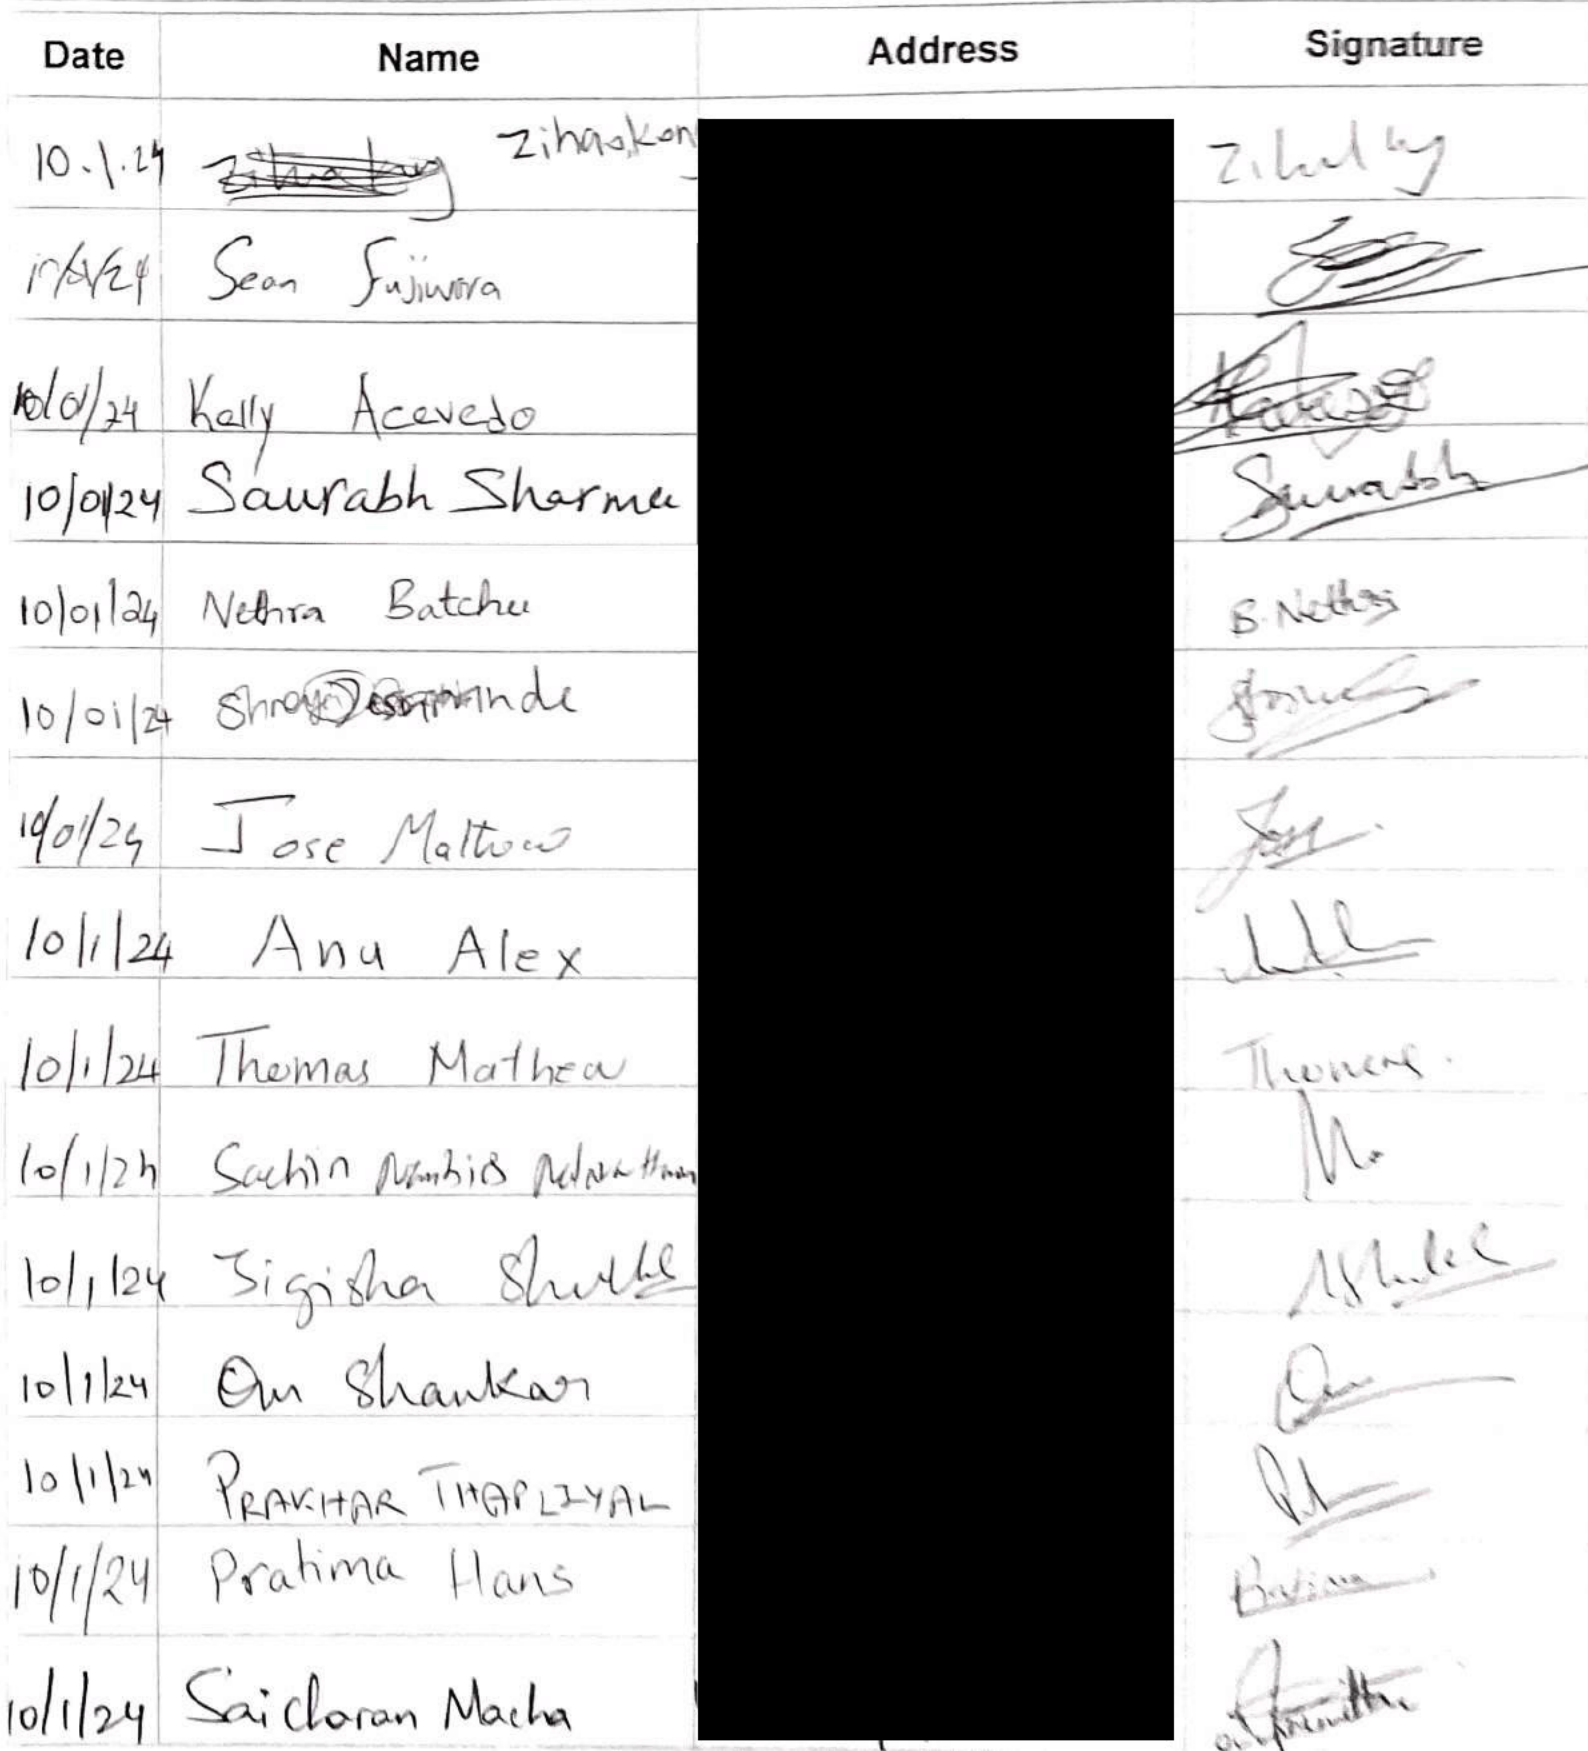 Date Name Address Signature
10.1.24 Zihao kon
Sean Fujiwara
10/01/24 Kelly Acevedo
10/01/24 Saurabh Sharma Saurabh
10/01/24 Nethra Batchu B. Nethra
10/01/24
10/01/24 Jose Mathew
10/1/24 Anu Alex
10/1/24 Thomas Mathew Thomas.
10/1/24 Sachin
10/1/24 Jigisha Shukla
10/1/24 Om Shankar Om
10/1/24 PRAKHAR THAPLIYAL
10/1/24 Pratima Hans Pratima
10/1/24 Saicharan Macha